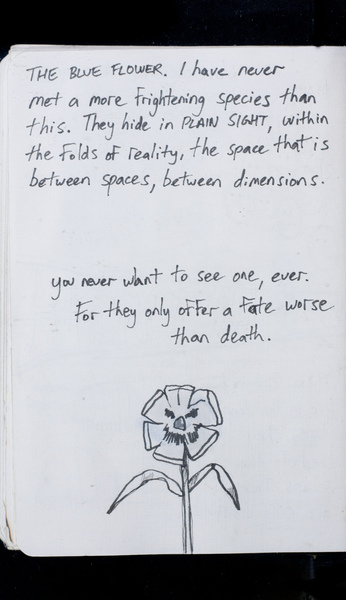 THE BLUE FLOWER. I have never
met a more frightening species than
this. They hide in PLAIN SIGHT, within
the folds of reality, the space that is
between spaces, between dimensions.
you never want to see one, ever.
For they only offer a fate worse
than death.